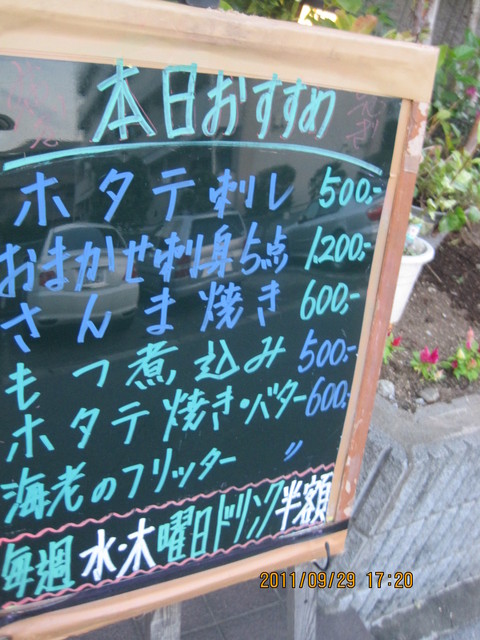 本日おすすめ
ホタテ刺し 500,-
おまかせ刺身5点 1,200,-
さんま焼き 600,-
もつ煮込み 500,-
ホタテ焼き・バター 600,-
海老のフリッター 〃
毎週水・木曜日ドリンク半額
2011/09/29 17:20